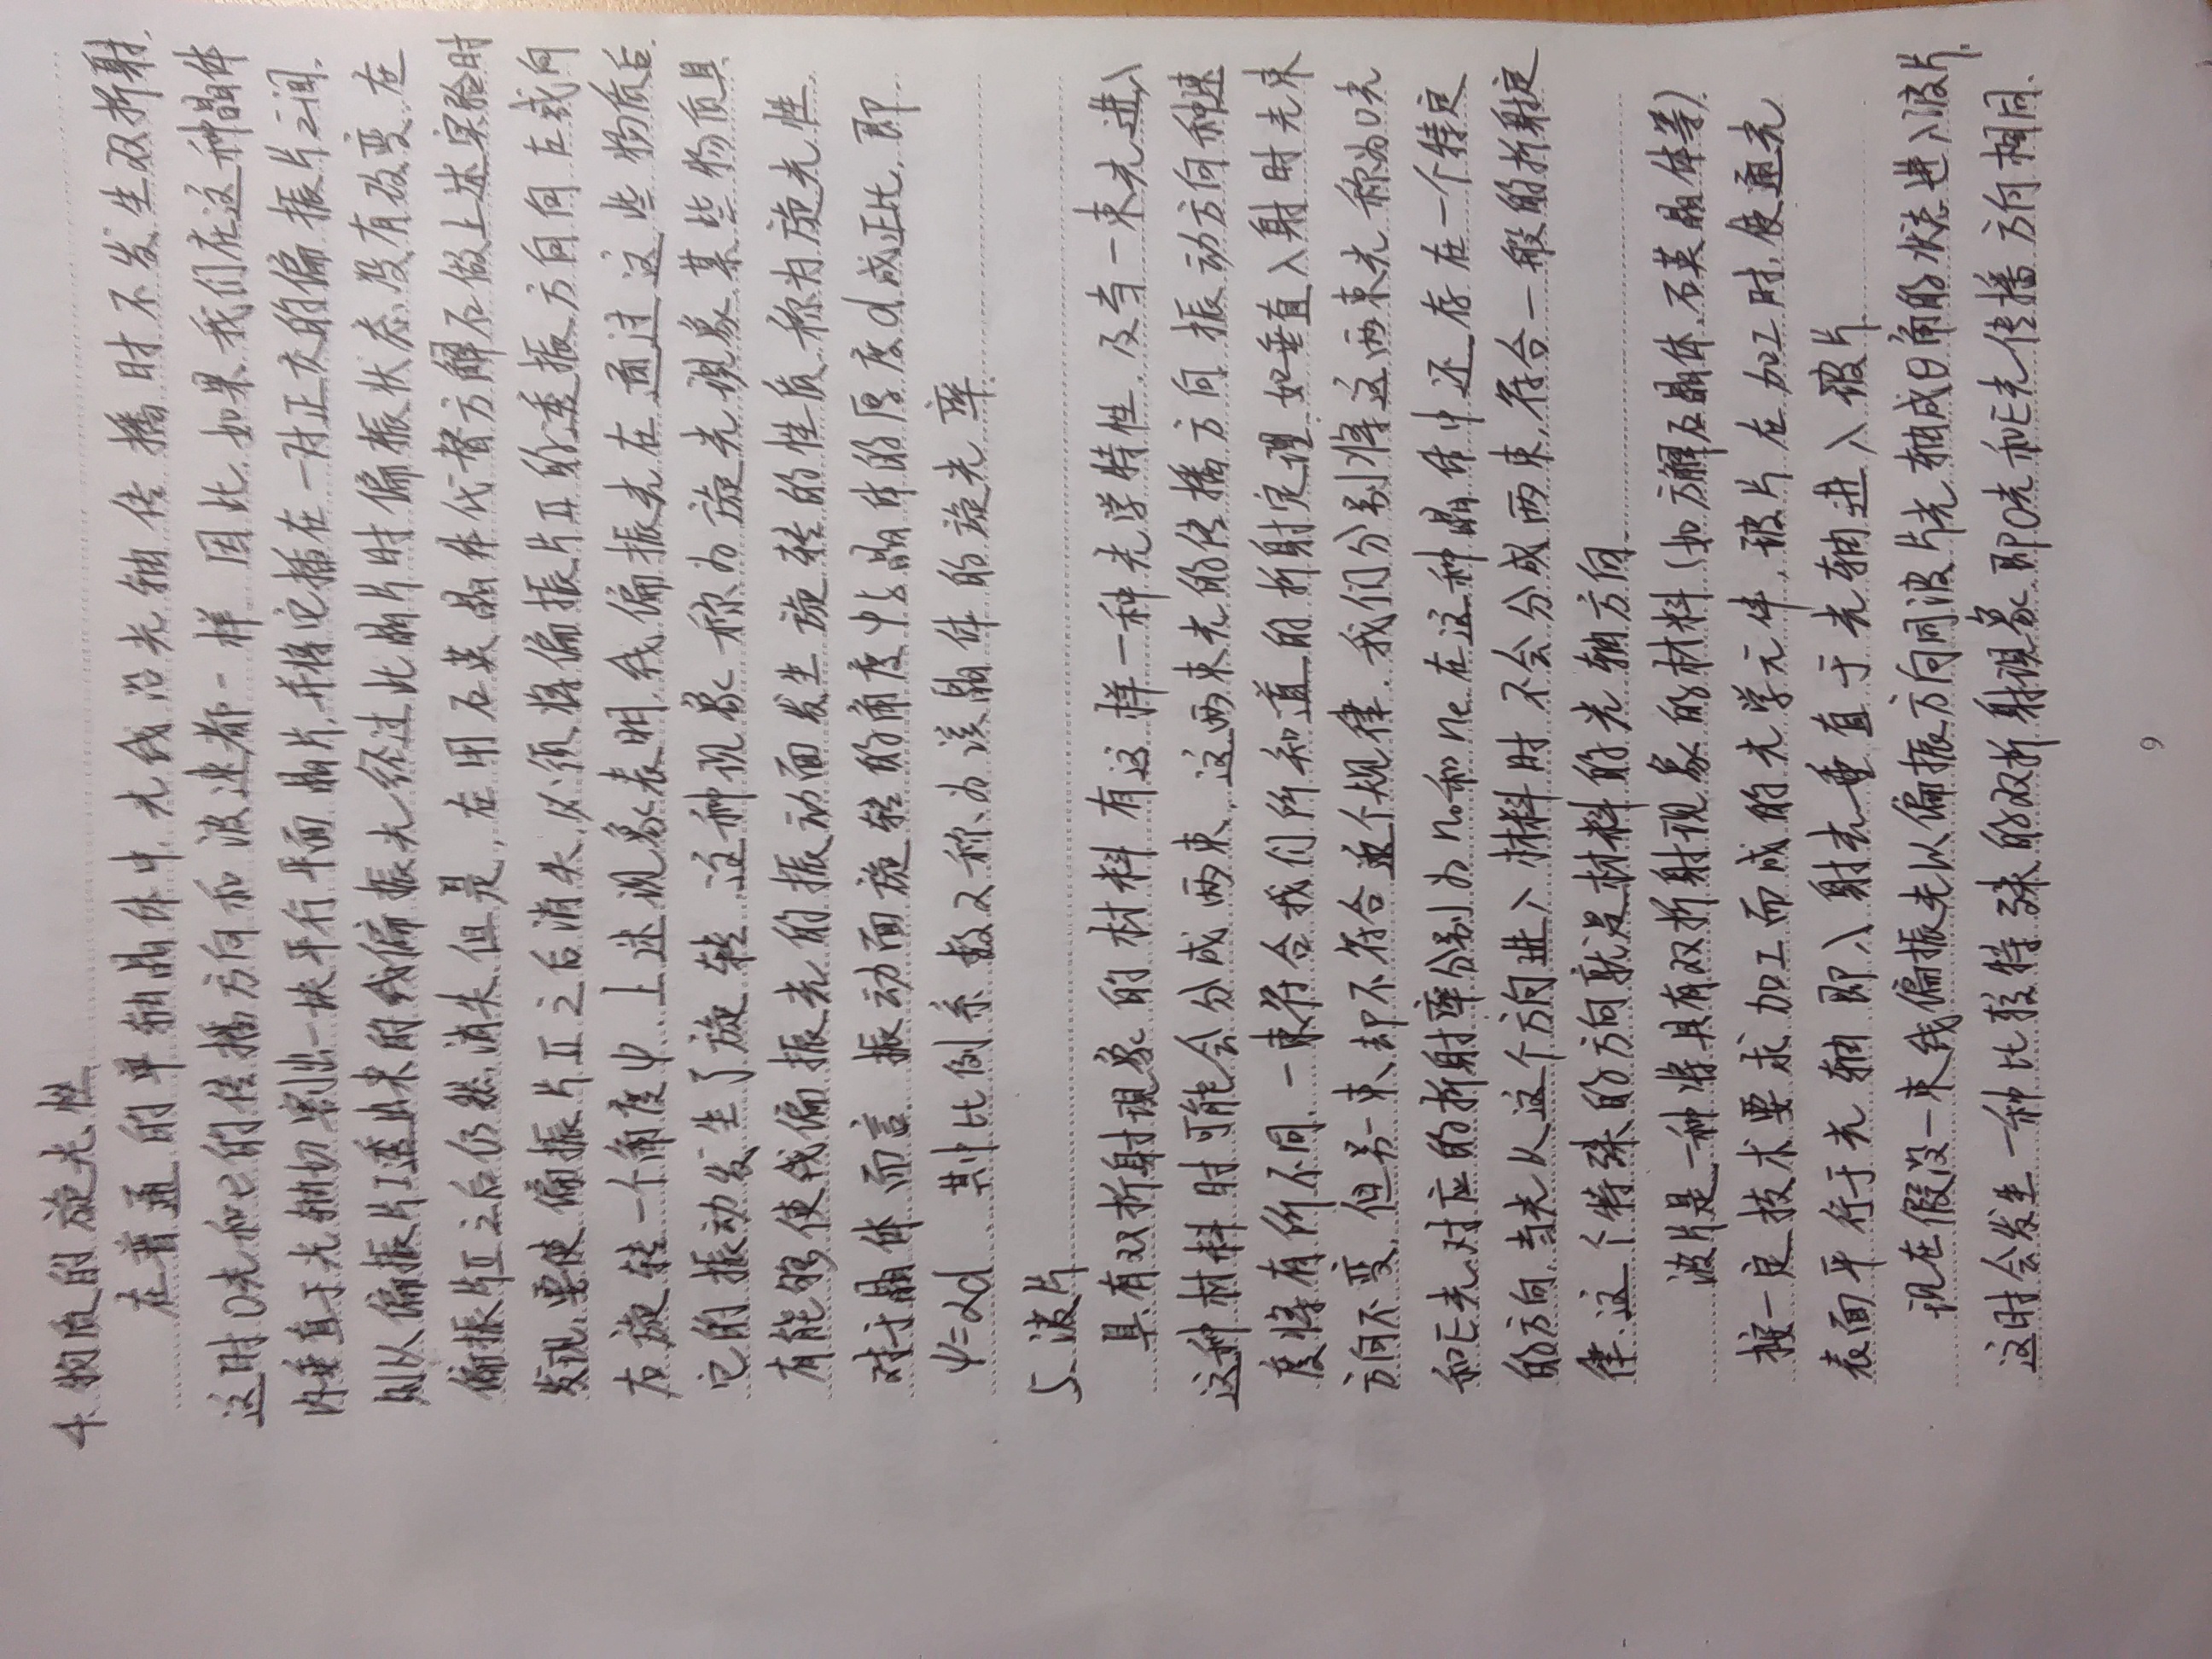 4. 物质的旋光性
在普通的单轴晶体中,光线沿光轴传播时不发生双折射.
这时O光和e的传播方向和波速都一样.因此,如果我们在这种晶体
内垂直于光轴切割出一块平行平面晶片,并将它插在一对正交的偏振片之间.
则从偏振片I透出来的线偏振光经过此晶片时偏振状态没有改变,在
偏振片II之后仍然消失.但是,在用石英晶体代替方解石做上述实验时
发现,要使偏振片II之后消失,必须将偏振片II的透振方向向左或向
右旋转一个角度ψ.上述现象表明,线偏振光在通过这些物质后.
它的振动发生了旋转.这种现象称为旋光现象.某些物质具
有能够使线偏振光的振动面发生旋转的性质,称为旋光性.
对于晶体而言,振动面旋转的角度ψ与晶体的厚度d成正比,即
ψ=αd 其中比例系数α称为该晶体的旋光率.
5、波片
具有双折射现象的材料有这样一种光学特性,及当一束光进入
这种材料时可能会分成两束,这两束光的传播方向、振动方向和速
度将有所不同.一束符合我们所知道的折射定理.如垂直入射时光束
方向不变.但另一束、却不符合这个规律.我们分别将这两束光称为O光
和E光,对应的折射率分别为no和ne.在这种晶体中还存在一个特定
的方向,当光从这个方向进入材料时不会分成两束,符合一般的折射定
律.这个特殊的方向就是材料的光轴方向.
波片是一种将具有双折射现象的材料(如方解石晶体.石英晶体等).
按一定技术要求加工而成的光学元件,玻片在加工时,使通光
表面平行于光轴 即入射光垂直于光轴进入玻片
现在假设一束线偏振光以偏振方向同波片光轴成θ角的状态进入波片.
这时会发生一种比较特殊的双折射现象.即O光和E光传播方向相同.
9